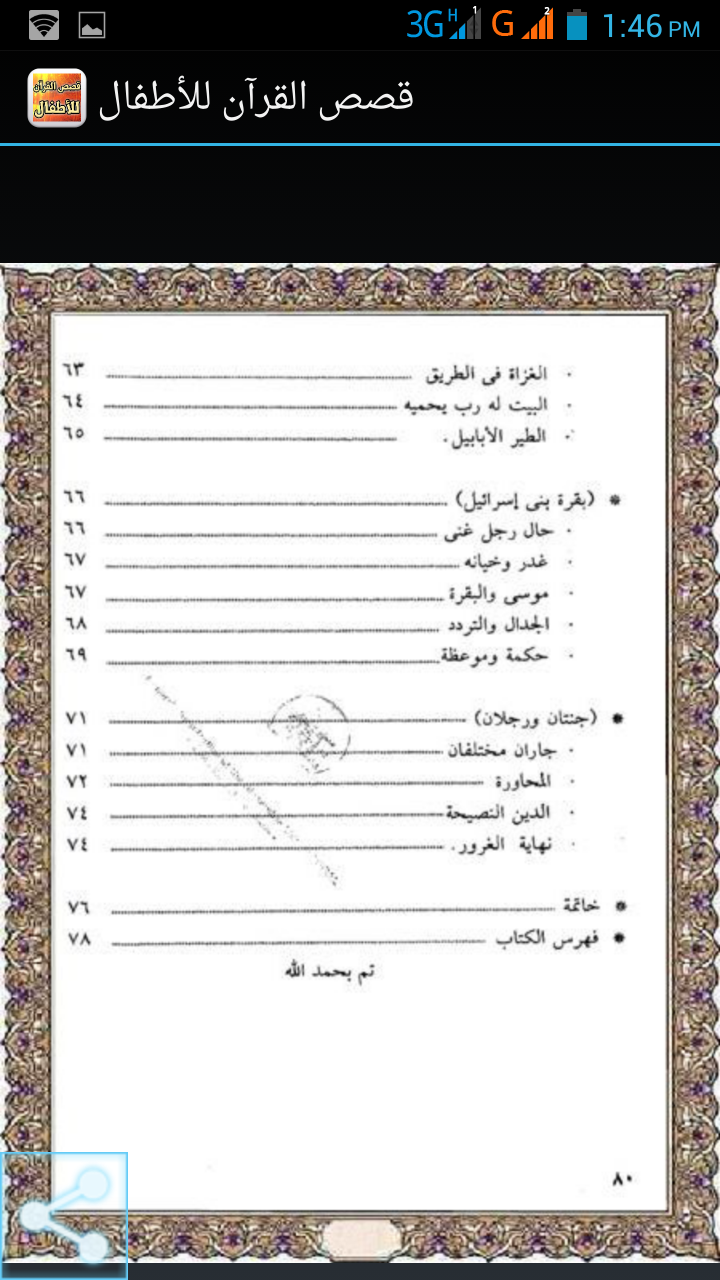 3G H 1 G 2 1:46 PM
قصص القرآن للأطفال
قصص القرآن
للأطفال
· الغزاة فى الطريق ٦٣
· البيت له رب يحميه ٦٤
· الطير الأبابيل. ٦٥
* (بقرة بنى إسرائيل) ٦٦
· حال رجل غنى ٦٦
· غدر وخيانه ٦٧
· موسى والبقرة ٦٧
· الجدال والتردد ٦٨
· حكمة وموعظة ٦٩
* (جنتان ورجلان) ٧١
· جاران مختلفان ٧١
· المحاورة ٧٢
· الدين النصيحة ٧٤
· نهاية الغرور. ٧٤
* خاتمة ٧٦
* فهرس الكتاب ٧٨
تم بحمد الله
٨٠